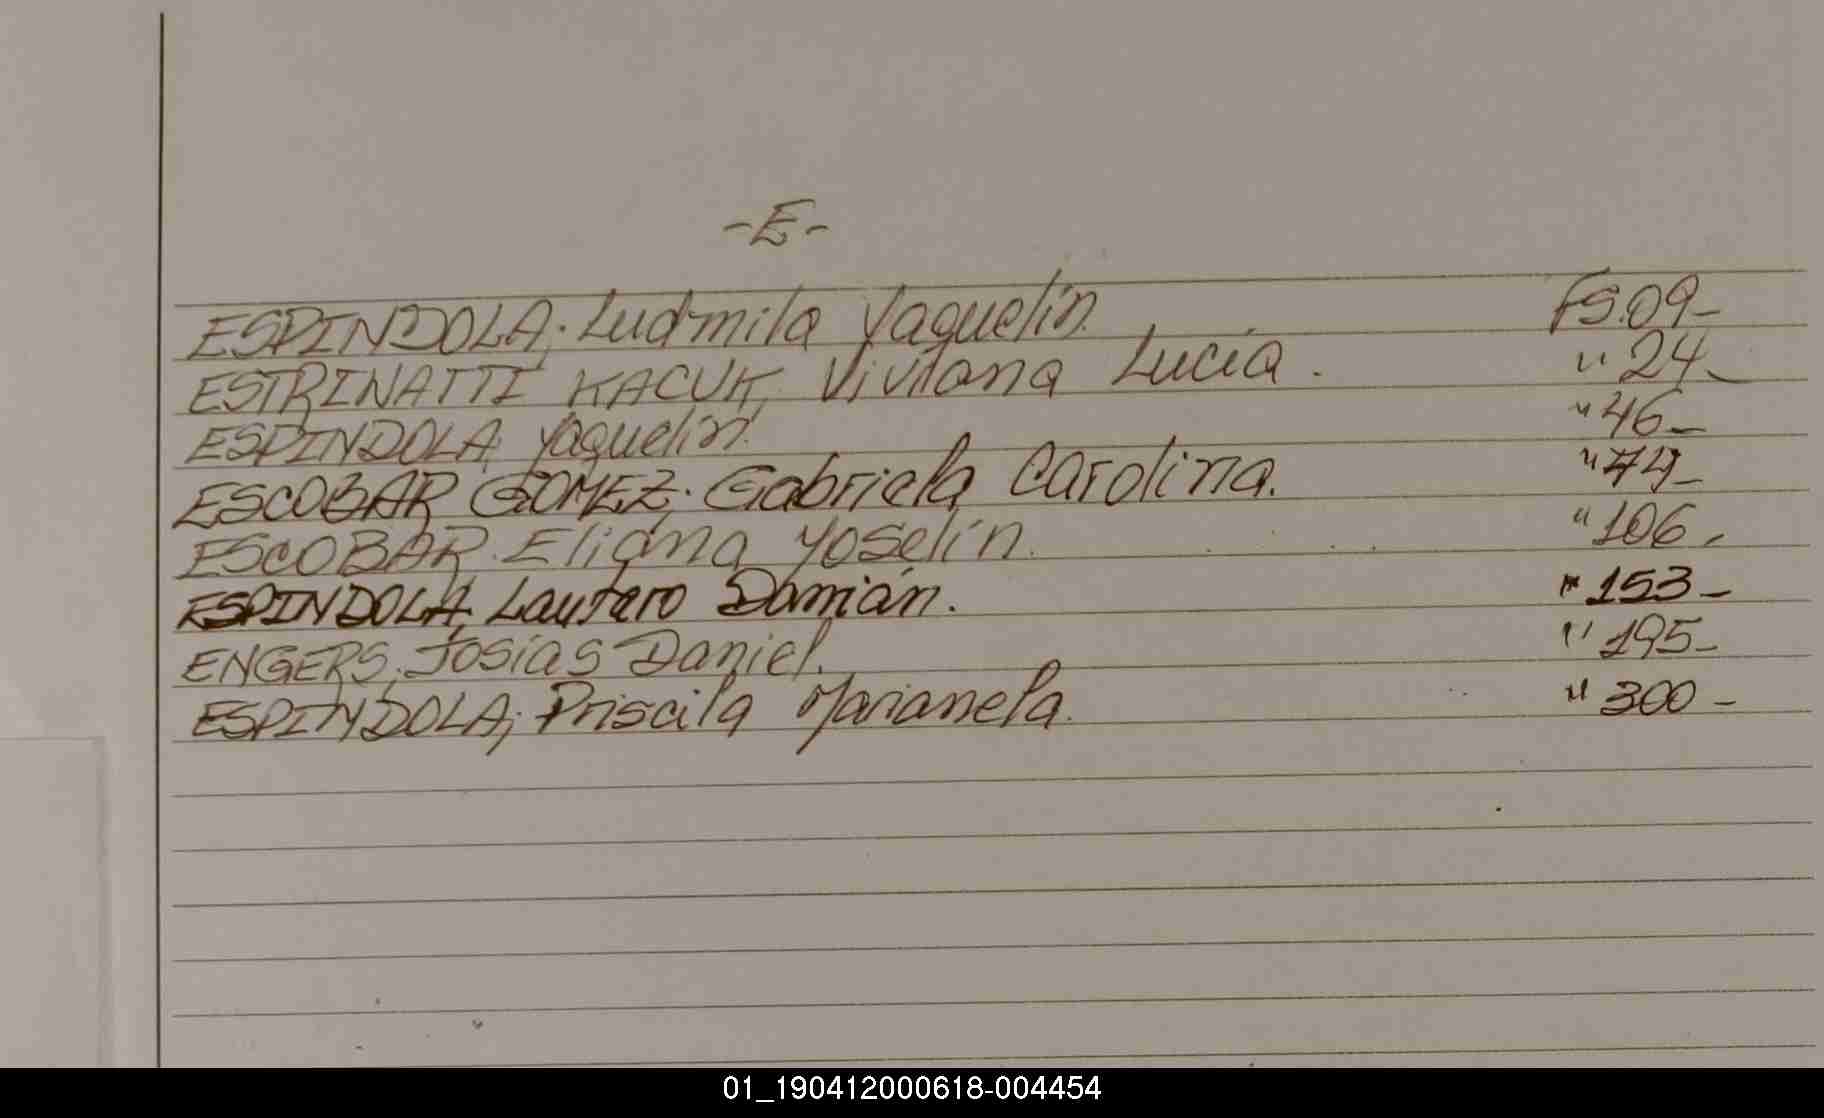 -E-
ESPINDOLA; Ludmila Yaquelín. Fs.09-
ESTRINATTI KACUK, Viviana Lucía. " 24-
ESPINDOLA Yaquelín. " 46-
ESCOBAR GOMEZ; Gabriela Carolina. " 74-
ESCOBAR. Eliana Yoselín. " 106.
ESPINDOLA, Lautaro Damián. " 153-
ENGERS, Josías Daniel. " 195-
ESPINDOLA; Priscila Marianela. " 300-
01_190412000618-004454